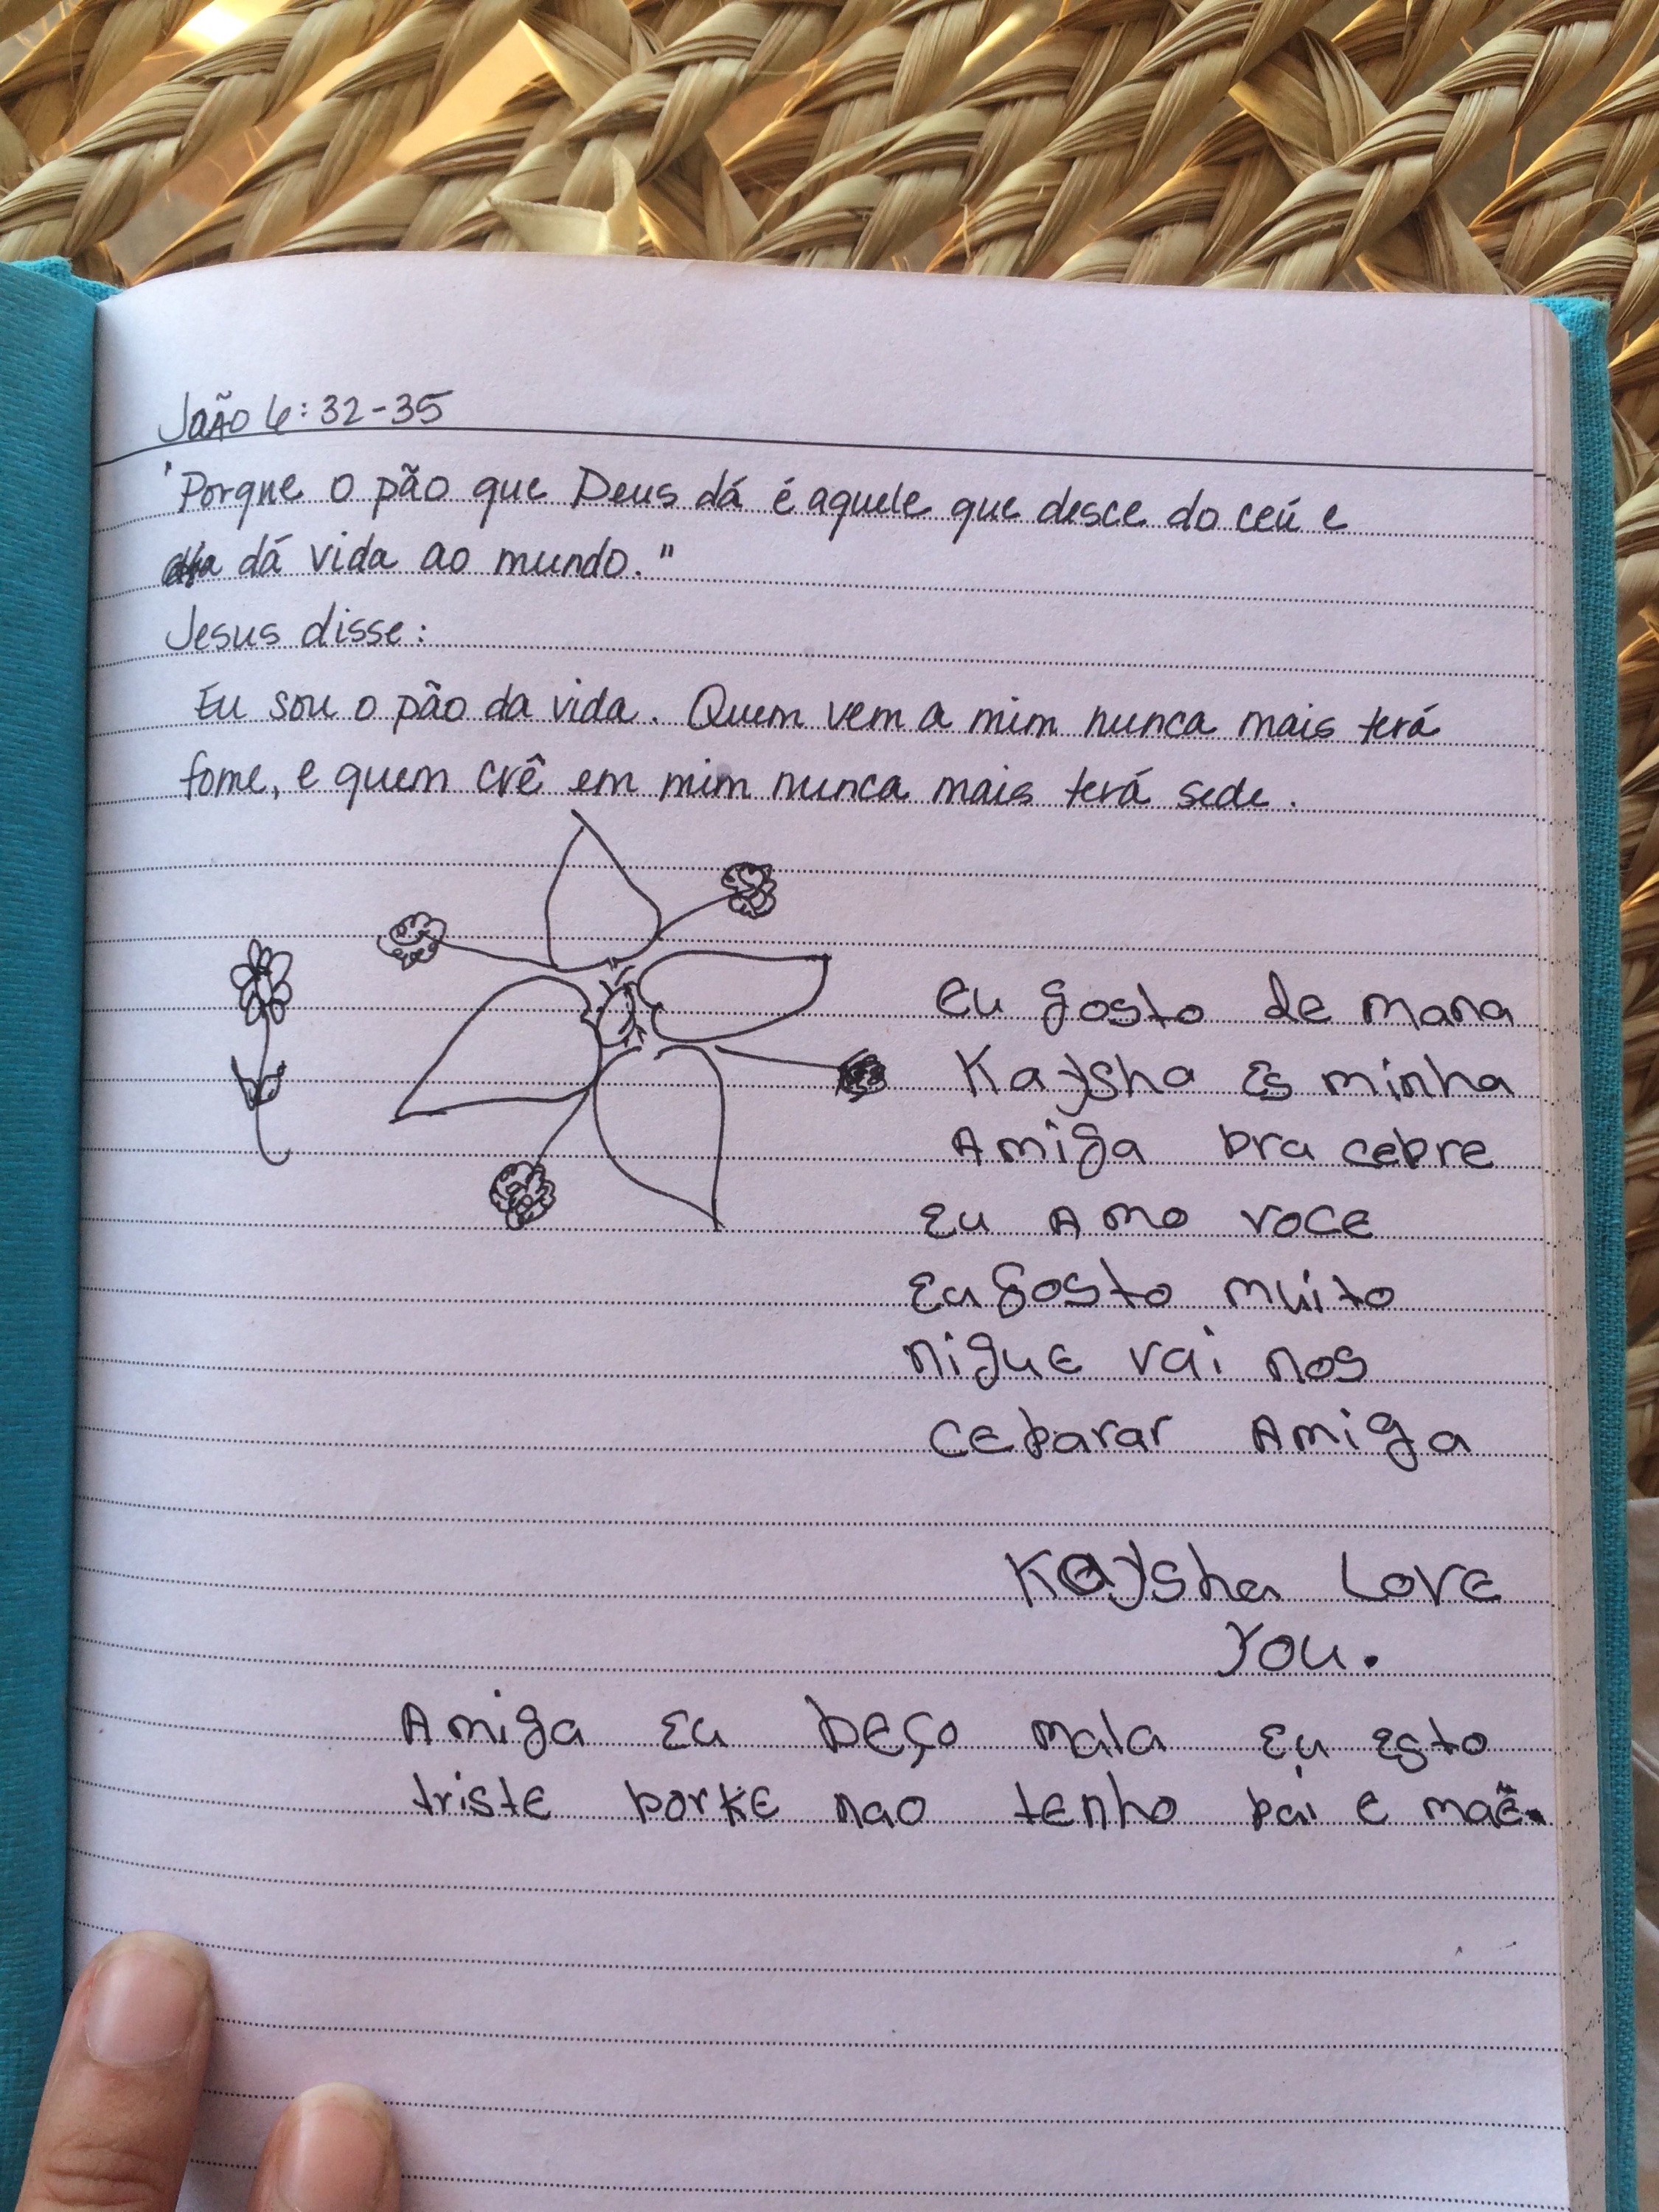 João 6:32-35
"Porque o pão que Deus dá é aquele que desce do céu e
dá vida ao mundo."
Jesus disse:
Eu sou o pão da vida. Quem vem a mim nunca mais terá
fome, e quem crê em mim nunca mais terá sede.
eu gosto de mana
Kaysha es minha
Amiga pra cepre
Eu Amo voce
Eu gosto muito
nigue vai nos
ceparar Amiga
Kaysha Love
You.
Amiga Eu peço mala eu esto
triste porke nao tenho pai e maẽ.